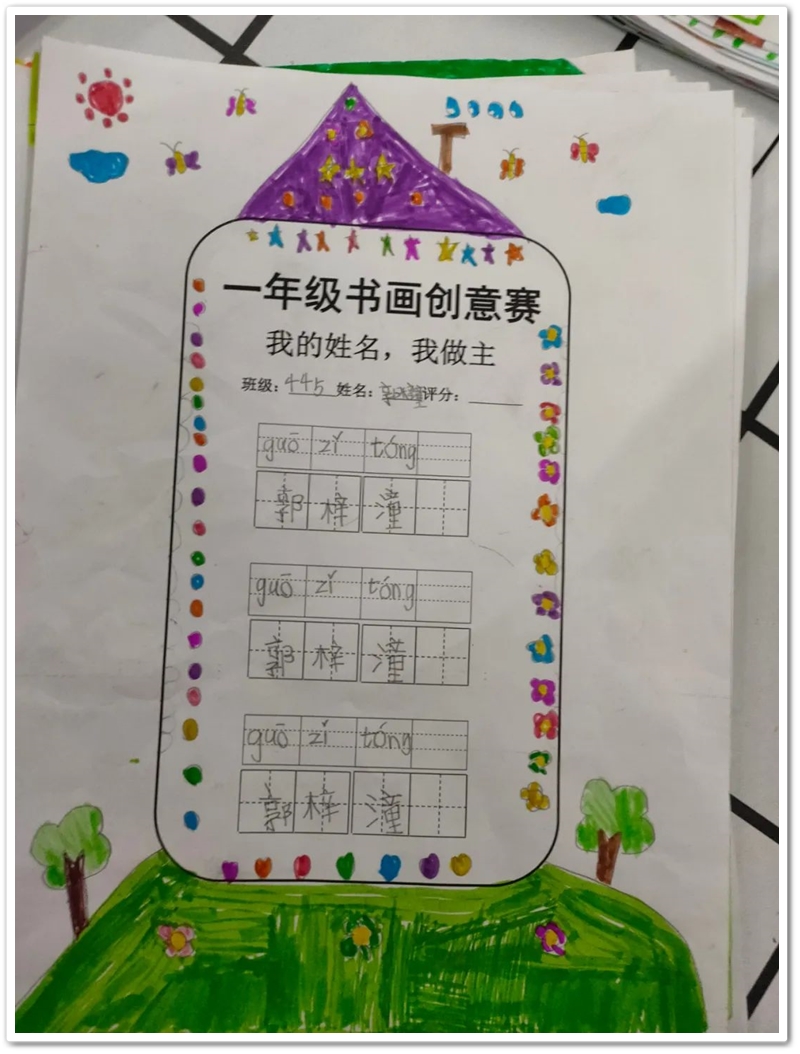 一年级书画创意赛
我的姓名，我做主
班级：445 姓名：郭梓潼 评分：
guō zǐ tóng
郭 梓 潼
guō zǐ tóng
郭 梓 潼
guō zǐ tóng
郭 梓 潼